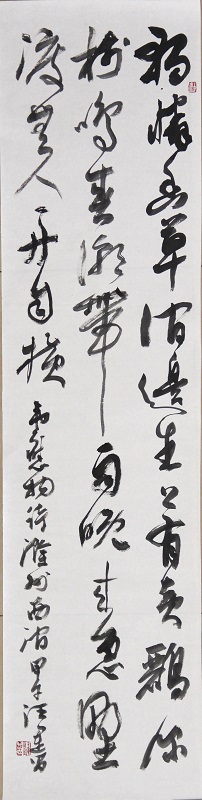 独怜幽草涧边生上有黄鹂深
树鸣春潮带雨晚来急野
渡无人舟自横
韦应物诗滁州西涧甲午汪